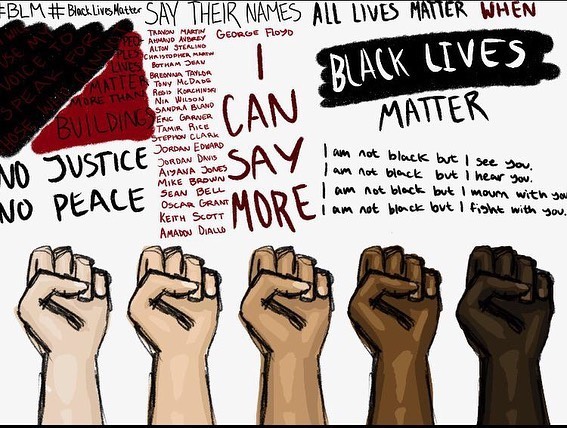 #BLM #BlackLivesMatter
PEOPLES
LIVES
MATTER
MORE THAN
BUILDINGS
NO JUSTICE
NO PEACE
SAY THEIR NAMES
TRAVON MARTIN
AHMAUD AUBREY
ALTON STEALING
CHRISTOPHER MARTIN
BOTHAM JEAN
BREONNA TAYLOR
TONY MCDADE
REGIS KORCHINSKI
NIA WILSON
SANDRA BLAND
ERIC GARNER
TAMIR RICE
STEPHON CLARK
JORDAN EDWARD
JORDAN DAVIS
AIYANA JONES
MIKE BROWN
SEAN BELL
OSCAR GRANT
KEITH SCOTT
AMADOU DIALLO
GEORGE FLOYD
I
CAN
SAY
MORE
ALL LIVES MATTER WHEN
BLACK LIVES
MATTER
I am not black but I see you.
I am not black but I hear you.
I am not black but I mourn with you
I am not black but I fight with you.